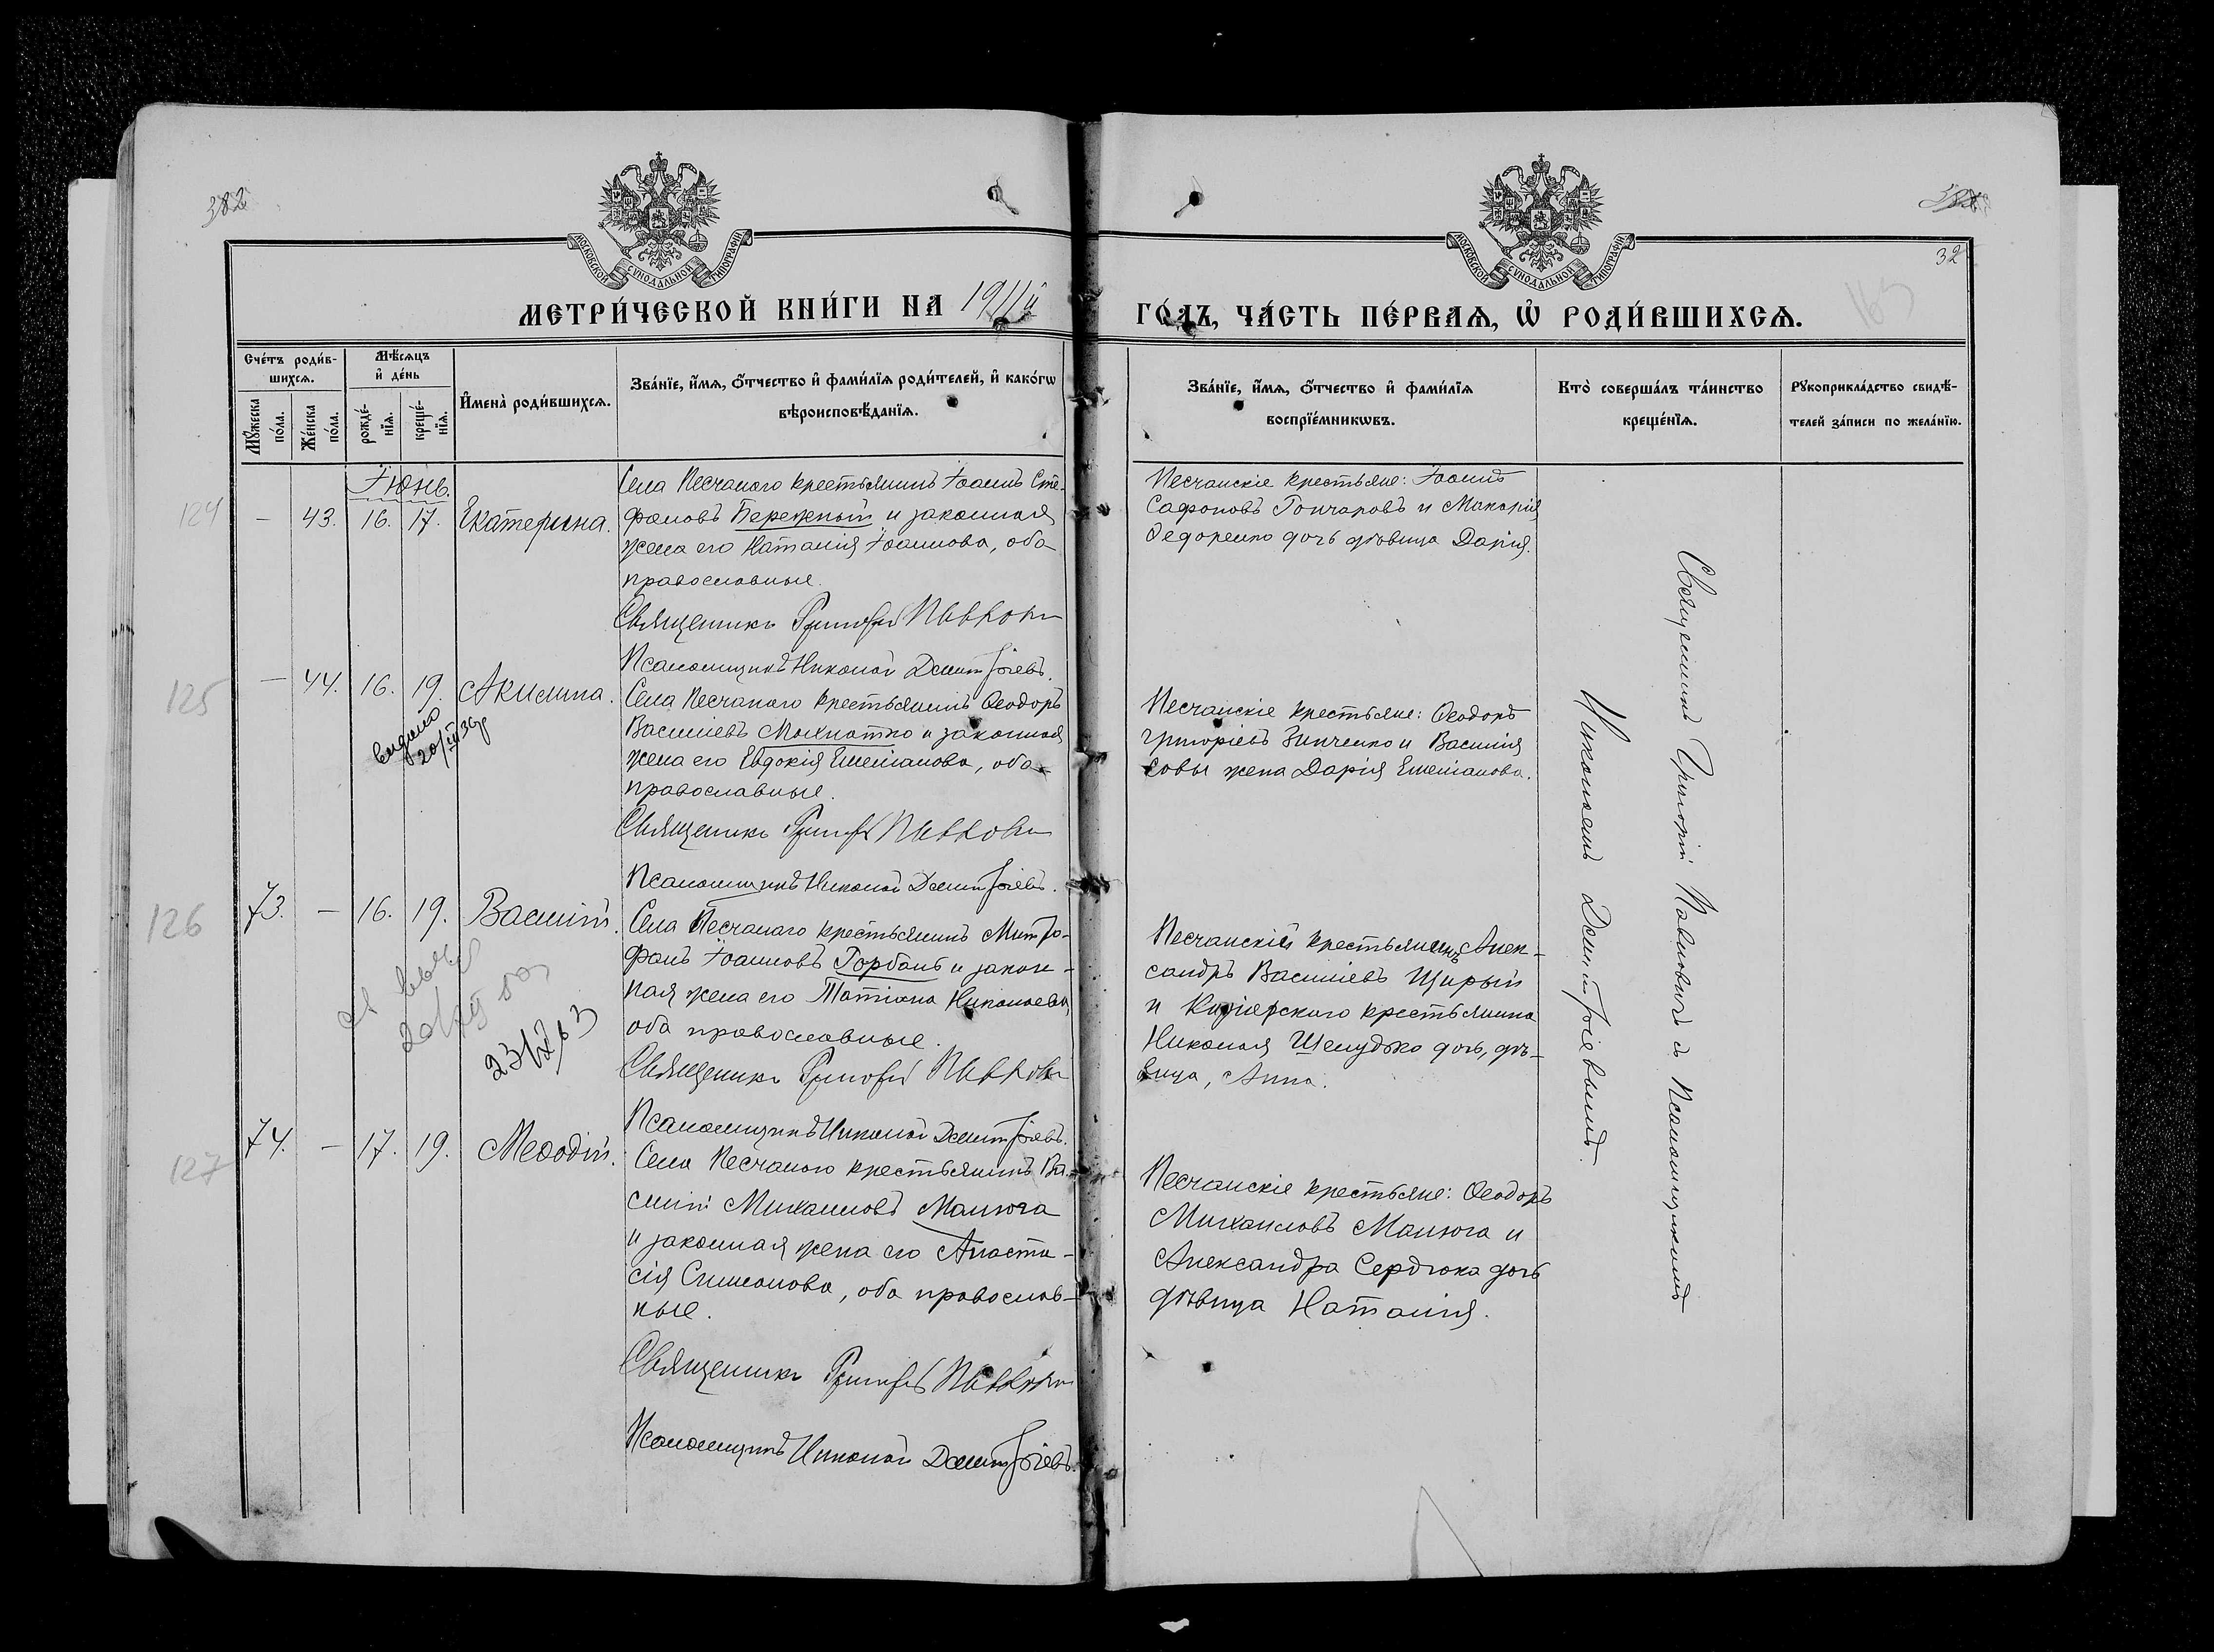 382
32
МОСКОВСКОЙ СѴНОДАЛЬНОЙ ТИПОГРАФІИ
МОСКОВСКОЙ СѴНОДАЛЬНОЙ ТИПОГРАФІИ
МЕТРИ́ЧЕСКОЙ КНИ́ГИ НА 1911й
ГО́ДЪ, ЧА́СТЬ ПЕ́РВАѦ, Ѡ҆ РОДИ́ВШИХСѦ.
Сче́тъ роди́в-
шихсѧ.
Мꙋ́жеска
по́ла.
Же́нска
по́ла.
Мѣ́сѧцъ
и҆ де́нь
рожде́-
нїѧ.
креще́-
нїѧ.
И҆мена̀ роди́вшихсѧ.
Зва́нїе, и҆́мѧ, ѻ҆́тчество и҆ фами́лїѧ роди́телей, и҆ како́гѡ
вѣроисповѣ́данїѧ.
Зва́нїе, и҆́мѧ, ѻ҆́тчество и҆ фами́лїѧ
воспрїе́мникѡвъ.
Кто̀ соверша́лъ та́инство
креще́нїѧ.
Рꙋкоприкла́дство свидѣ́-
телей за́писи по жела́нїю.
Іюнь.
124 — 43. 16. 17. Екатерина.
Села Песчанаго крестьянинъ Іоаннъ Сте-
фановъ Бережный и законная
жена его Наталія Іоаннова, оба
православные.
Священникъ Григорій Павловъ
Псаломщикъ Николай Димитріевъ.
Песчанскіе крестьяне: Іоаннъ
Сафоновъ Гончаровъ и Макарія
Федоренко дочь дѣвица Дарія.
125 — 44. 16. 19. Акилина.
видано
Села Песчанаго крестьянинъ Ѳеодоръ
Васильевъ Мохнатко и законная
жена его Евдокія Емеліанова, оба
православные.
Священникъ Григорій Павловъ
Псаломщикъ Николай Димитріевъ.
Песчанскіе крестьяне: Ѳеодоръ
Григоріевъ Зинченко и Василія
Совы жена Дарія Емеліанова.
126 73. — 16. 19. Василій.
Села Песчанаго крестьянинъ Митро-
фанъ Іоанновъ Горбань и закон-
ная жена его Татіана Николаева,
оба православные.
Священникъ Григорій Павловъ
Псаломщикъ Николай Димитріевъ.
Песчанскій крестьянинъ Алек-
сандръ Васильевъ Щирый
и крестьянина
Николая Шелудько дочь, дѣ-
вица, Анна.
127 74. — 17. 19. Меѳодій.
Села Песчанаго крестьянинъ Ва-
силій Михаиловъ Манюга
и законная жена его Анаста-
сія Симеонова, оба православ-
ные.
Священникъ Григорій Павловъ
Псаломщикъ Николай Димитріевъ.
Песчанскіе крестьяне: Ѳеодоръ
Михаиловъ Манюга и
Александра Сердюка дочь
дѣвица Наталія.
Священникъ Григорій Павловичъ съ Псаломщикомъ
Николаемъ Димитріевымъ.